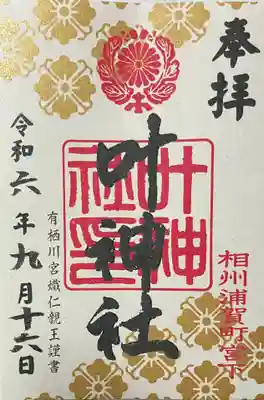 奉拝
叶神社
叶神社印
相州浦賀町宮下
有栖川宮熾仁親王謹書
令和六年九月十六日